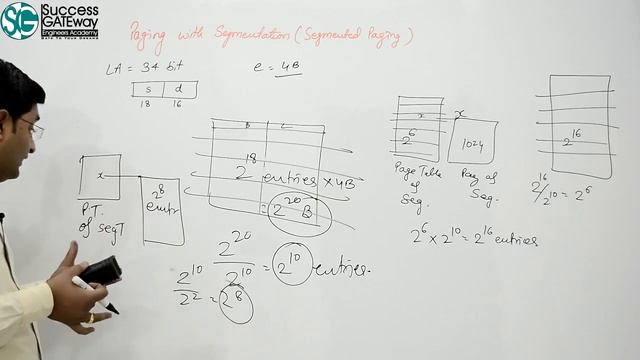 Success
GATEway
Engineers Academy
Paging with Segmentation (Segmented Paging)
LA = 34 bit
e = 4B
s d
18 16
B L
2^18 entries × 4B
= 2^20 B
x
P.T.
of segT
2^8
2^20 / 2^10 = 2^10 entries.
2^10 / 2^2 = 2^8
x x
2^6
1024
Page Table
of
Seg.
Pag of
Seg.
2^16
2^16 / 2^10 = 2^6
2^6 × 2^10 = 2^16 entries